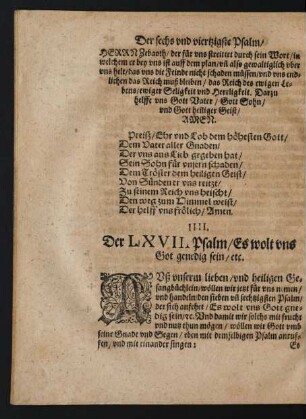 Der sechs vnd viertzigste Psalm/
HERRN Zebaoth/ der für vns streittet durch sein Wort/ in
welchem er bey vns ist auff dem plan/ vñ also gewaltiglich vber
vns helt/ das vns die Feinde nicht schaden müssen/ vnd vns end-
lichen das Reich muß bleiben/ das Reich des ewigen Le-
bens/ ewiger Seligkeit vnd Herrligkeit. Darzu
helffe vns Gott Vater/ Gott Sohn/
vnd Gott heiliger Geist/
AMEN.
Preiß/ Ehr vnd Lob dem höhesten Gott/
Dem Vater aller Gnaden/
Der vns aus Lieb gegeben hat/
Sein Sohn für vnsern schaden/
Dem Tröster dem heiligen Geist/
Von Sünden er vns reitzt/
Zu seinem Reich vns heischt/
Den weg zum Himmel weist/
Der helff vns frölich/ Amen.
IIII.
Der LXVII. Psalm/ Es wolt vns
Got genedig sein/ etc.
AUß vnserm lieben/ vnd heiligen Ge-
sangbüchlein/ wöllen wir jetzt für vns nemen/
vnd handeln den sieben vñ sechtzigsten Psalm/
der sich anfehet/ Es wolt vns Gott gne-
dig sein/ ec. Vnd damit wir solchs mit frucht
vnd nutz thun mögen/ wöllen wir Gott vmb
seine Gnade vnd Segen/ eben mit demselbigen Psalm anruf-
fen/ vnd mit einander singen:
Es